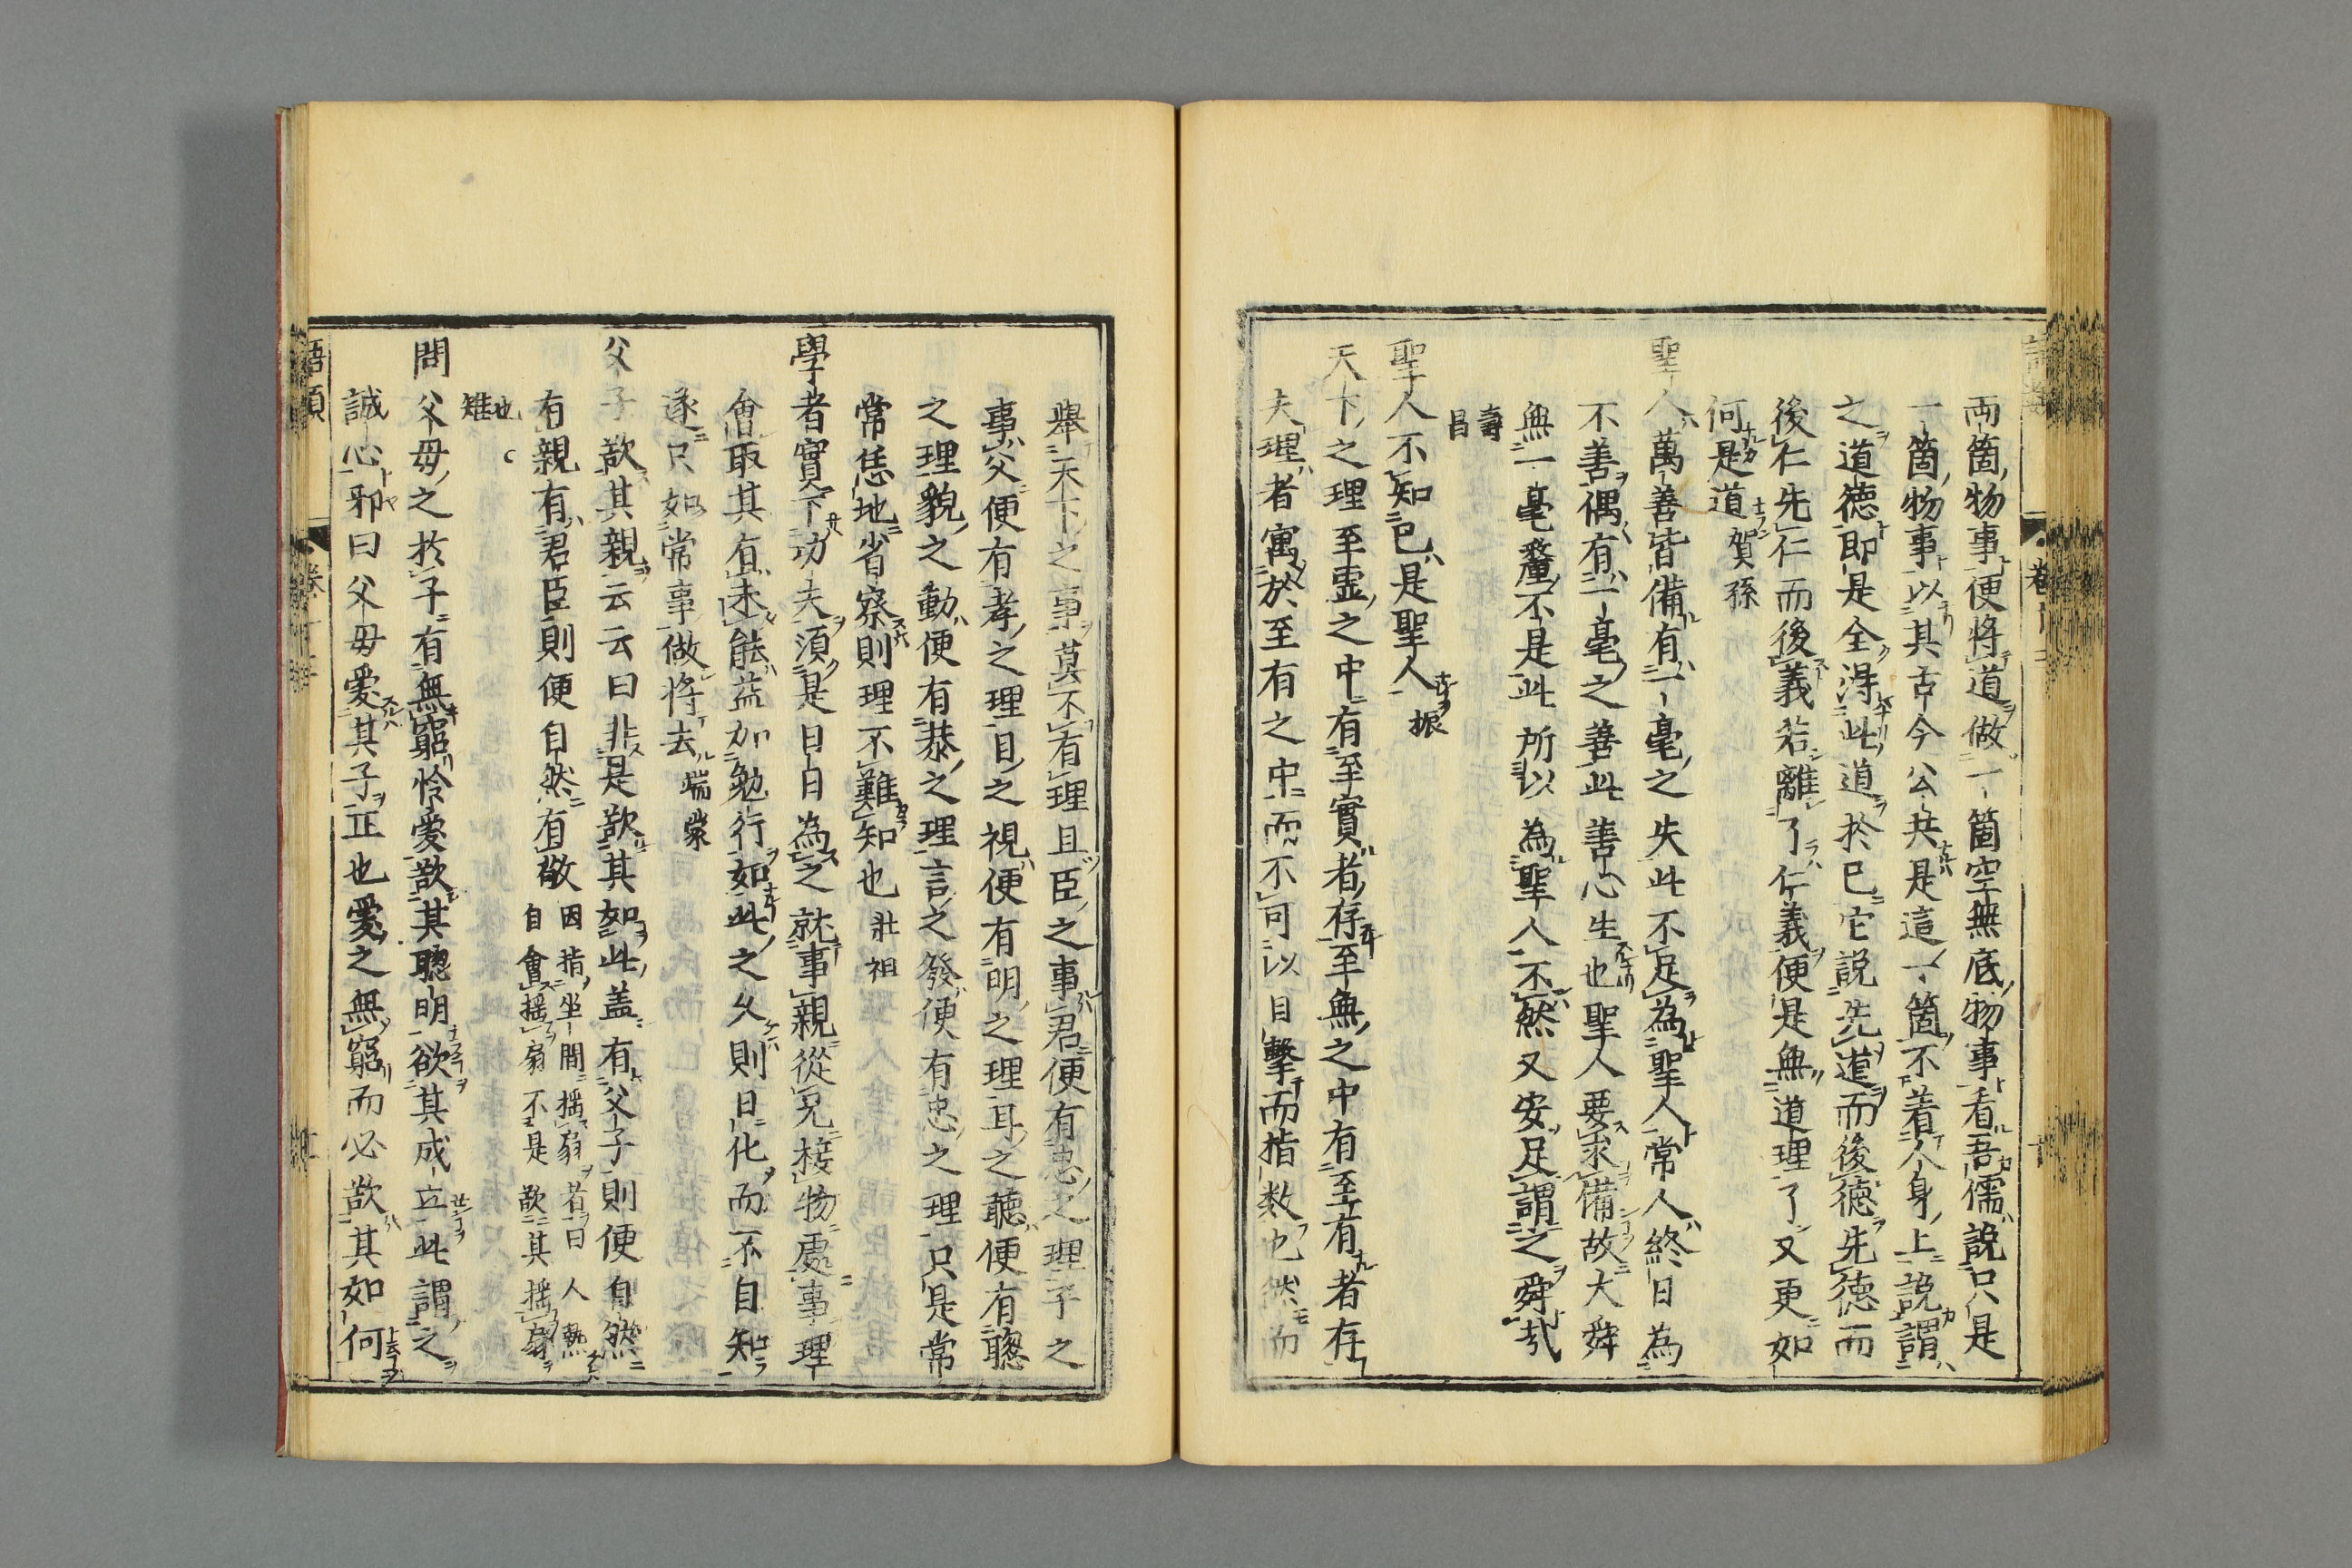 兩箇物事便將道做一箇空無底物事看吾儒說只是
一箇物事以其古今公共是這一箇不着人身上說謂
之道德即是全得此道於己它說先道而後德先德而
後仁先仁而後義若離了仁義便是無道理了又更如
何是道賀孫
聖人萬善皆備有一毫之失此不足為聖人常人終日為
不善偶有一毫之善此善心生也聖人要求備故大舜
無一毫釐不是此所以為聖人不然又安足謂之舜哉
壽
昌
聖人不知己是聖人振
天下之理至虛之中有至實者存至無之中有至有者存
夫理者寓於至有之中而不可以目擊而指数也然而
舉天下之事莫不有理且臣之事君便有忠之理子之
事父便有孝之理目之視便有明之理耳之聽便有聰
之理貌之動便有恭之理言之發便有忠之理只是常
常恁地省察則理不難知也壯祖
學者實下功夫須是日日為之就事親從兄接物處事理
會取其有未能益加勉行如此之久則日化而不自知
遂只如常事做將去端蒙
父子欲其親云云曰非是欲其如此盖有父子則便自然
有親有君臣則便自然有敬
因指坐間搖扇者曰人熱
自會搖扇不是欲其搖扇
也
雉
問父母之於子有無窮怜愛欲其聰明欲其成立此謂之
誠心邪曰父母愛其子正也愛之無窮而必欲其如何
語類
卷十三